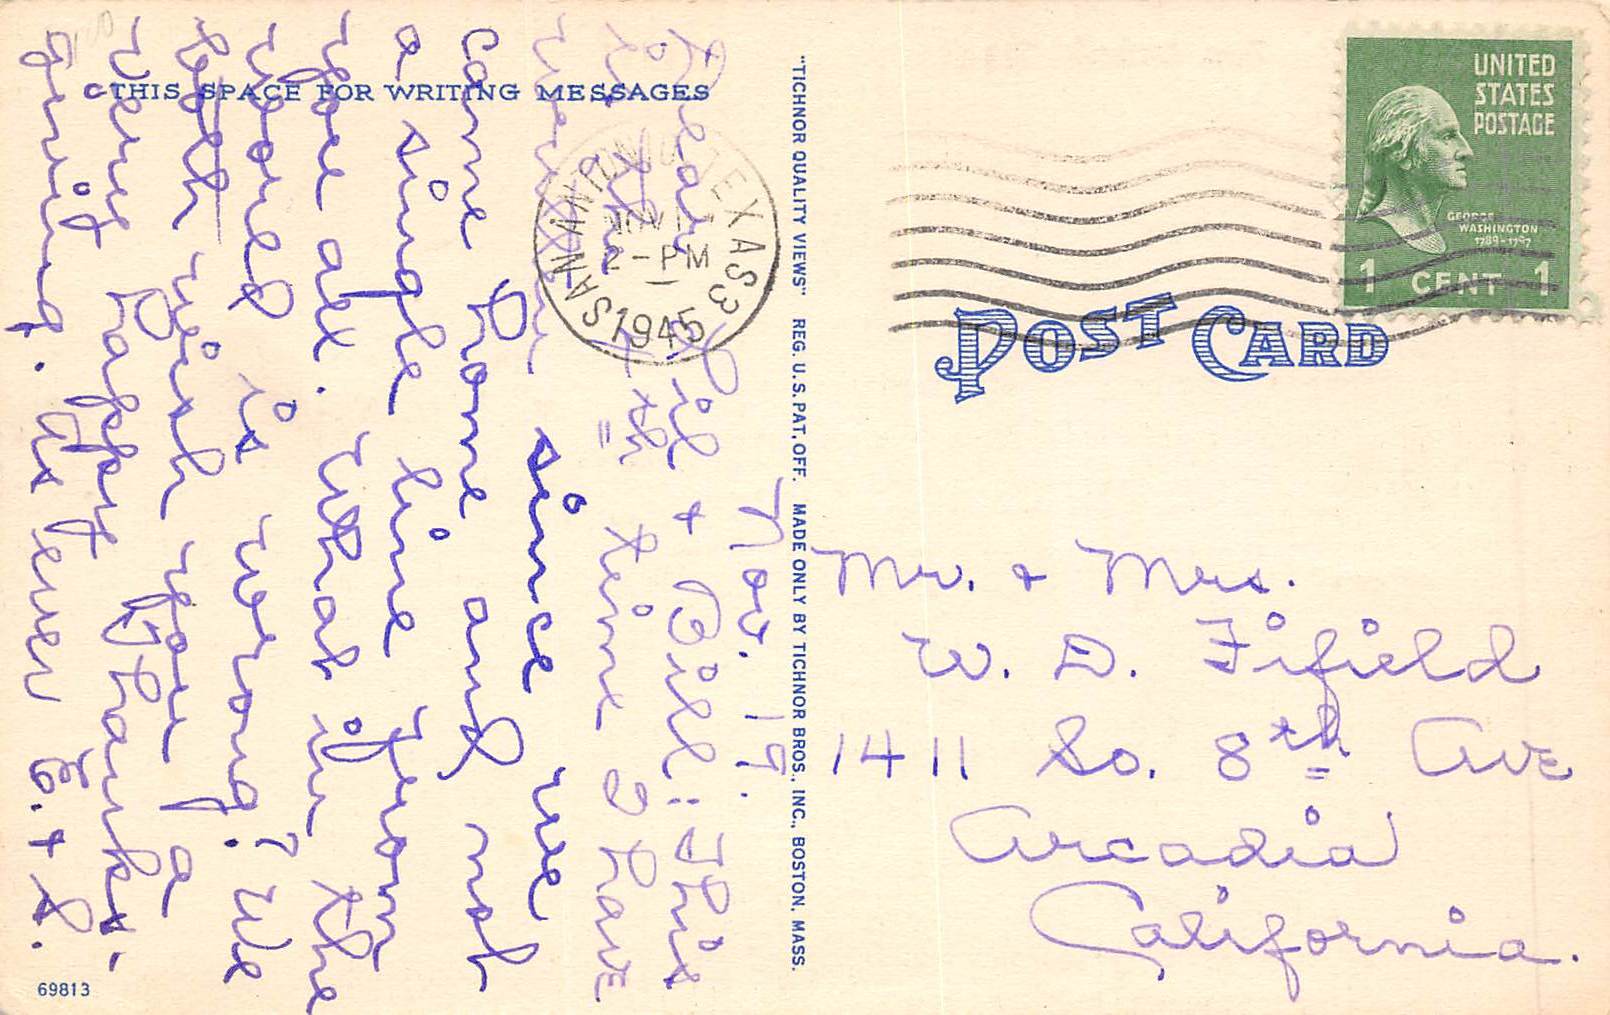 THIS SPACE FOR WRITING MESSAGES
Nov. 19.
Dear Lil + Bill: This
is the 4th time I have
written since we
came home and not
a single line from
you all. What in the
world is wrong? We
both wish you a
very happy Thanks-
giving. As ever E. +
69813
"TICHNOR QUALITY VIEWS" REG. U.S. PAT. OFF. MADE ONLY BY TICHNOR BROS., INC., BOSTON, MASS.
SAN ANTONIO, TEXAS 3
NOV
2 - PM
1945
UNITED
STATES
POSTAGE
GEORGE
WASHINGTON
1789-1797
1 CENT 1
POST CARD
Mr. + Mrs.
W. D. Fifield
1411 So. 8th Ave
Arcadia
California.